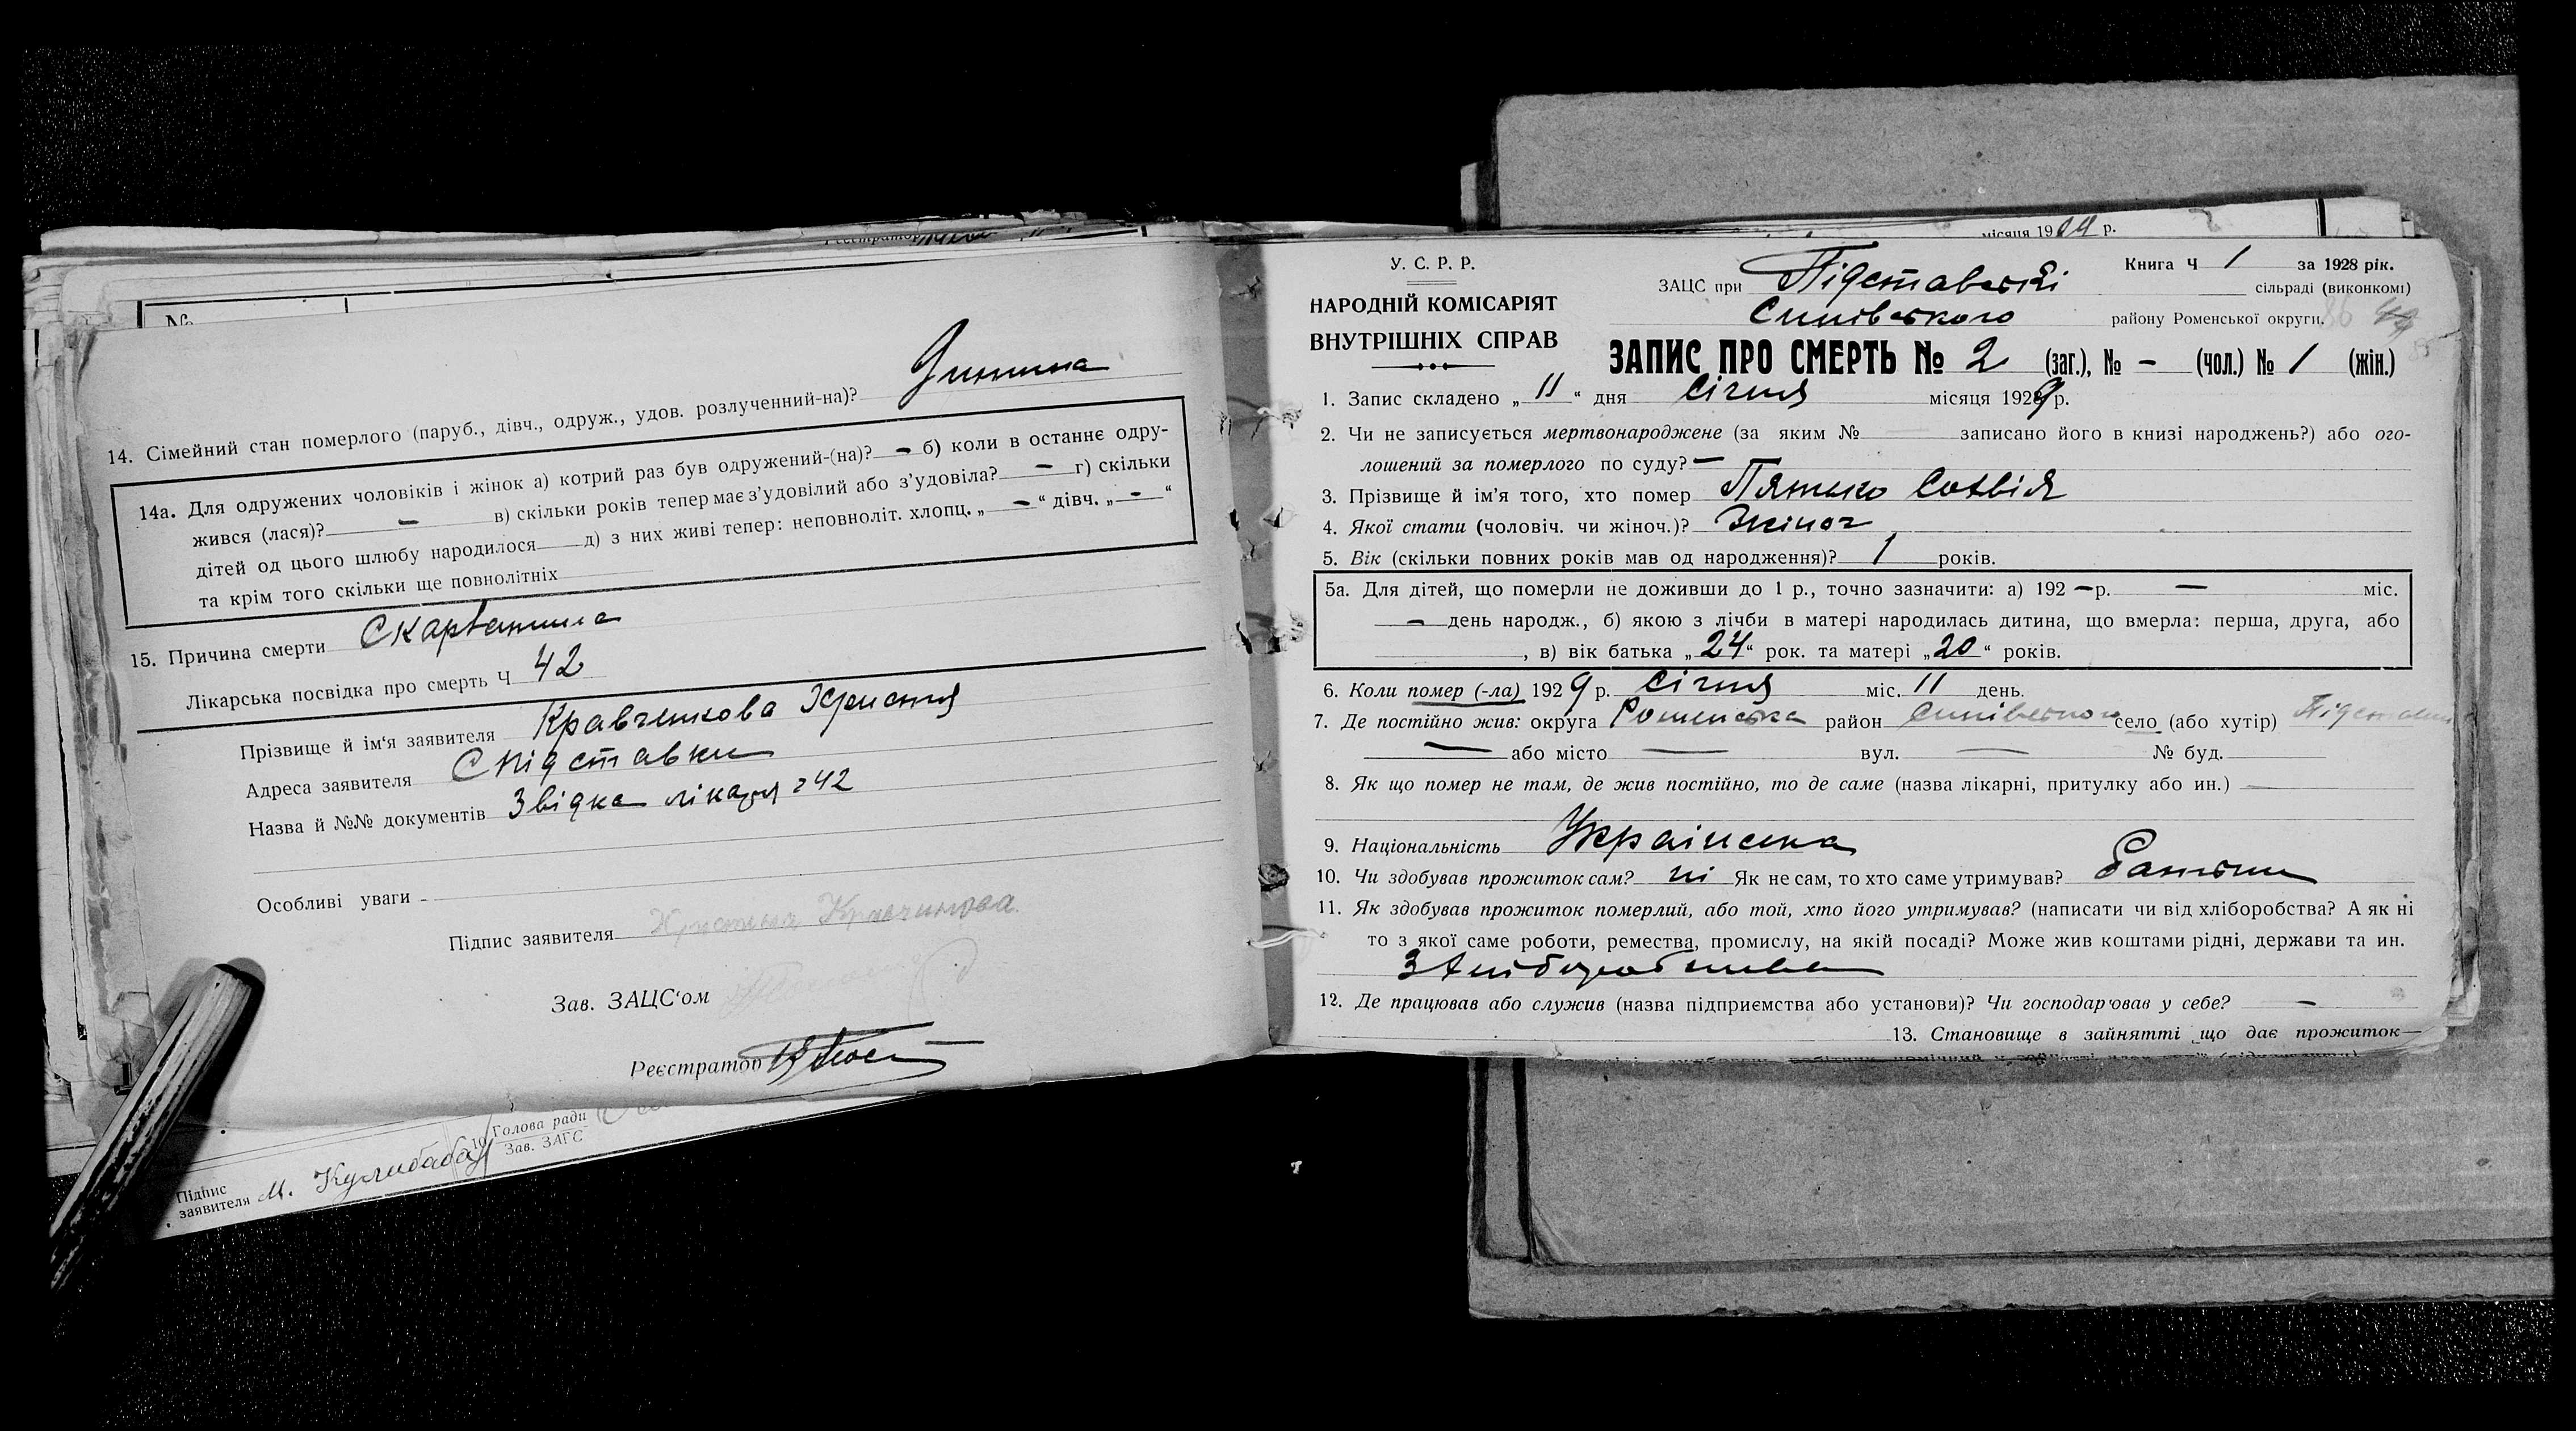 місяця 19 р.
№
14. Сімейний стан померлого (паруб., дівч., одруж., удов. розлученний-на)?
14а. Для одружених чоловіків і жінок а) котрий раз був одружений-(на)? — б) коли в останнє одру-
жився (лася)? — в) скільки років тепер має з’удовілий або з’удовіла? — г) скільки
дітей од цього шлюбу народилося д) з них живі тепер: неповноліт. хлопц. „ — “ дівч. „ — “
та крім того скільки ще повнолітніх
15. Причина смерти
Лікарська посвідка про смерть Ч 42
Прізвище й ім‘я заявителя Кравченкова Христия
Адреса заявителя С Підставки
Назва й №№ документів Звідка лікаря 42
Особливі уваги -
Підпис заявителя
Зав. ЗАЦС‘ом
Реєстратор
Голова ради
Зав. ЗАГС
Підпис
заявителя М. Кулибаба
У. С. Р. Р.
НАРОДНІЙ КОМІСАРІЯТ
ВНУТРІШНІХ СПРАВ
Книга Ч 1 за 1928 рік.
ЗАЦС при Підставській сільраді (виконкомі)
Синівського району Роменської округи.
ЗАПИС ПРО СМЕРТЬ № 2 (заг.), № - (чол.) № 1 (жін.)
1. Запис складено „ 11 “ дня Січня місяця 1929 р.
2. Чи не записується мертвонароджене (за яким № записано його в книзі народжень?) або ого-
лошений за померлого по суду? —
3. Прізвище й ім’я того, хто помер
4. Якої стати (чоловіч. чи жіноч.)? Жіноч
5. Вік (скільки повних років мав од народження)? 1 років.
5а. Для дітей, що померли не доживши до 1 р., точно зазначити: а) 192 — р. — міс.
— день народж., б) якою з лічби в матері народилась дитина, що вмерла: перша, друга, або
, в) вік батька „ 24 “ рок. та матері „ 20 “ років.
6. Коли помер (-ла) 1929 р. Січня міс. 11 день.
7. Де постійно жив: округа Роменська район Синівського село (або хутір) Підставки
— або місто — вул. — № буд.
8. Як що помер не там, де жив постійно, то де саме (назва лікарні, притулку або ин.) —
9. Національність Українська
10. Чи здобував прожиток сам? ні Як не сам, то хто саме утримував? Батьки
11. Як здобував прожиток померлий, або той, хто його утримував? (написати чи від хліборобства? А як ні
то з якої саме роботи, ремества, промислу, на якій посаді? Може жив коштами рідні, держави та ин.
З хліборобства
12. Де працював або служив (назва підприємства або установи)? Чи господар‘ював у себе? —
13. Становище в зайнятті що дає прожиток—